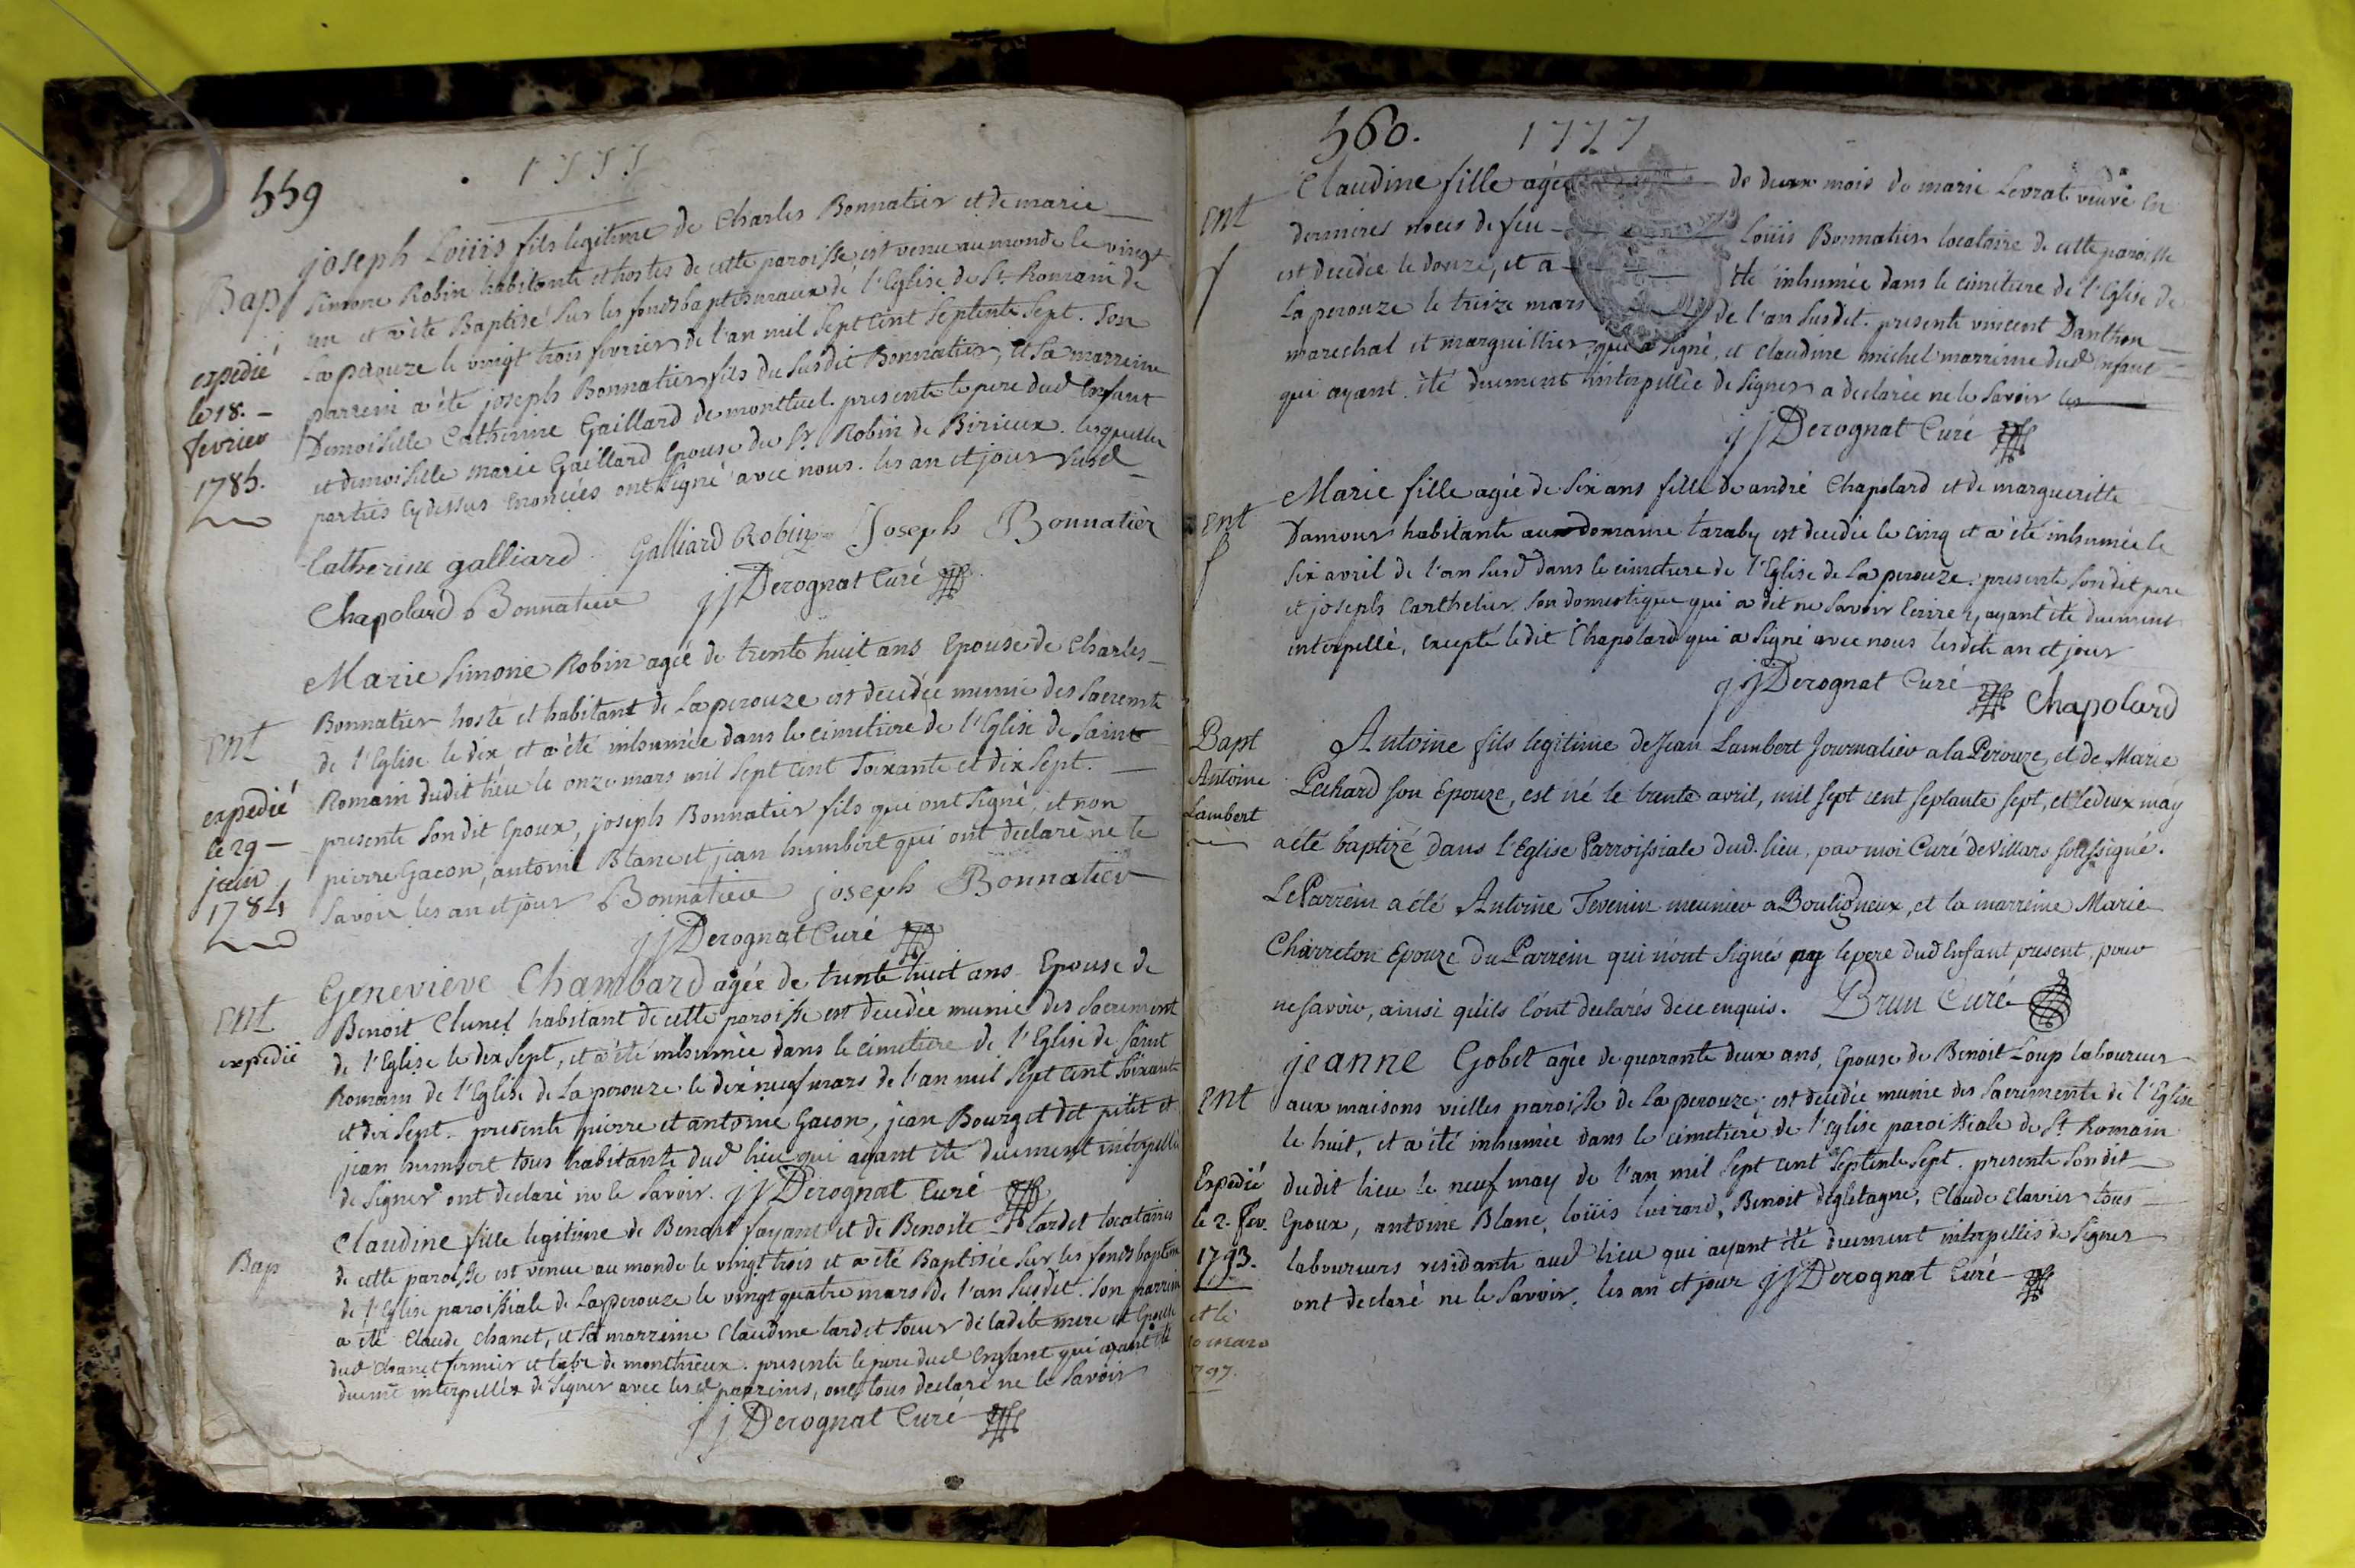 559
1777
Bap
joseph Loüis fils legitime de Charles Bonnatier et de marie
Simone Robin habitants et hostes de cette paroisse est venu au monde le vingt
un et a été Baptisé Sur les fonds baptismaux de l'Eglise de St. Romain de
La perouze le vingt trois fevrier de l'an mil Sept Cent Septente Sept. Son
parrein a été joseph Bonnatier fils du Susdit Bonnatier, et Sa marreine
Demoiselle Catherine Gaillard de montluel. presents le pere dud Enfant
et demoiselle marie Gaillard Epouse du Sr. Robin de Birieux. lesquelles
parties Cydessus Enoncées ont Signé avec nous. les an et jour Susd
expedié
le 18.
fevrier
1785.
Catherine galliard Galliard Robin Joseph Bonnatier
Chapolard Bonnatier jj Derognat Curé
ent
Marie Simone Robin agée de trente huit ans Epouse de Charles
Bonnatier hoste et habitant de La perouze est decedée munie des Sacrements
de l'Eglise le dix et a été inhumée dans le cimetiere de l'Eglise de Saint
Romain dudit lieu le onze mars mil Sept Cent Soixante et dix Sept.
presents Son dit Epoux, joseph Bonnatier fils qui ont Signé, et non
pierre Gacon, antoine Blanc et jean humbert qui ont declaré ne le
Savoir les an et jour Bonnatier joseph Bonnatier
expedié
le 29
juin
1784
jj Derognat Curé
ent
expedié
Genevieve Chambard agée de trente huit ans Epouse de
Benoit Clunel habitant de cette paroisse est decedée munie des Sacrement
de l'Eglise le dix Sept, et a été inhumée dans le cimetiere de l'Eglise de Saint
Romain de l'Eglise de La perouze le dix neuf mars de l'an mil Sept Cent Soixante
et dix Sept. presents pierre et antoine Gacon, jean Bourget dit petit et
jean humbert tous habitants dud lieu qui ayant été duement interpellés
de Signer ont declaré ne le Savoir. jj Derognat Curé
Bap
Claudine fille legitime de Benoit fayant et de Benoite tardet locataires
de cette paroisse est venue au monde le vingt trois et a été Baptisée Sur les fonds baptism
de l'Eglise paroissiale de La perouze le vingt quatre mars de l'an Susdit. Son parrein
a été Claude Chanet, et Sa marreine Claudine tardet Soeur de ladite mere et Epouse
dud Chanet fermier et de monthieux. presents le pere dud Enfant qui ayant été
duemt interpellés de Signer avec lesd parreins, ont tous declaré ne le Savoir
jj Derognat Curé
560.
1777
ent
Claudine fille agée de deux mois de marie Levrat veuve En
dernieres noces de feu Loüis Bonnatier locataire de cette paroisse
est decedée le douze, et a été inhumée dans le cimetiere de l'Eglise de
La perouze le treize mars de l'an Susdit. presents vincent Danthon
marechal et marguillier, qui a Signé, et Claudine michel marreine dud Enfant
qui ayant été duement interpellée de Signer a declarée ne le Savoir les
jj Derognat Curé
ent
Marie fille agée de Six ans fille de andré Chapolard et de marguerite
Damour habitants au domaine taraby est decedée le Cinq et a été inhumée le
Six avril de l'an Susd dans le cimetiere de l'Eglise de La perouze. presents Son dit pere
et joseph Carthelier Son domestique qui a dit ne Savoir Ecrire, ayant été duement
interpellé, Excepté ledit Chapolard qui a Signé avec nous lesdits an et jour
jj Derognat Curé Chapolard
Bapt
Antoine
Lambert
Antoine fils legitime de Jean Lambert Journalier a la Perouze, et de Marie
Pechard son Epouze, est né le trente avril, mil sept cent septante sept, et le deux may
a été baptizé dans l'Eglise Parroissiale dud. lieu, par moi Curé de Villars soussigné.
Le Parrein a été Antoine Tevenin meunier a Bouligneux, et la marreine Marie
Charreton Epouze du Parrein qui n'ont signés ny le pere dud Enfant present, pour
ne savoir, ainsi qu'ils l'ont declarés de ce enquis. Brun Curé
ent
jeanne Gobet agée de quarante deux ans, Epouse de Benoit Loup laboureur
aux maisons vielles paroisse de La perouze, est decedée munie des Sacrements de l'Eglise
le huit, et a été inhumée dans le cimetiere de l'Eglise paroissiale de St. Romain
dudit lieu le neuf may de l'an mil Sept Cent Septente Sept. presents Son dit
Epoux, antoine Blanc, loüis Luirard, Benoit degletagne, Claude Clavier tous
laboureurs residants aud lieu qui ayant été duement interpellés de Signer
ont declaré ne le Savoir, les an et jour jj Derognat Curé
Expedié
le 2. fev.
1793.
et le
10 mars
1797.